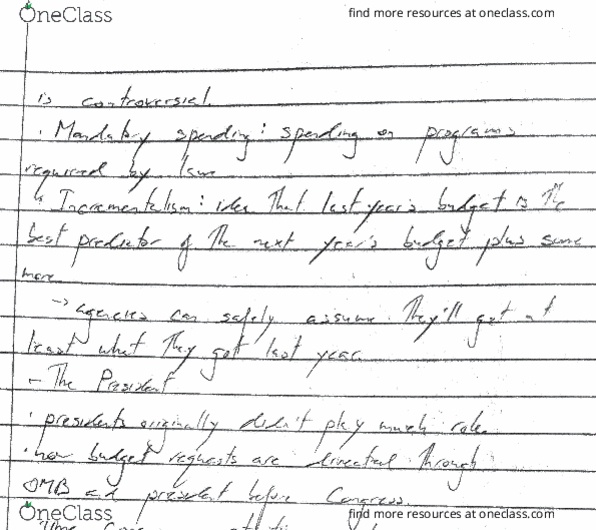 OneClass
find more resources at oneclass.com
is controversial.
· Mandatory spending: spending on programs
required by law
↳ Incrementalism: idea that last year's budget is the
best predictor of the next year's budget plus some
more
-> agencies can safely assume they'll get at
least what they got last year.
- The President
· presidents originally didn't play much role.
· now budget requests are directed through
OMB and president before Congress.
OneClass
find more resources at oneclass.com